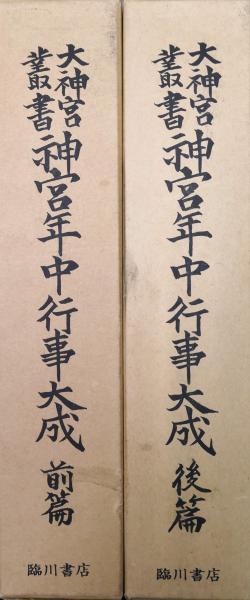 大神宮叢書
神宮年中行事大成
前篇
臨川書店
大神宮叢書
神宮年中行事大成
後篇
臨川書店